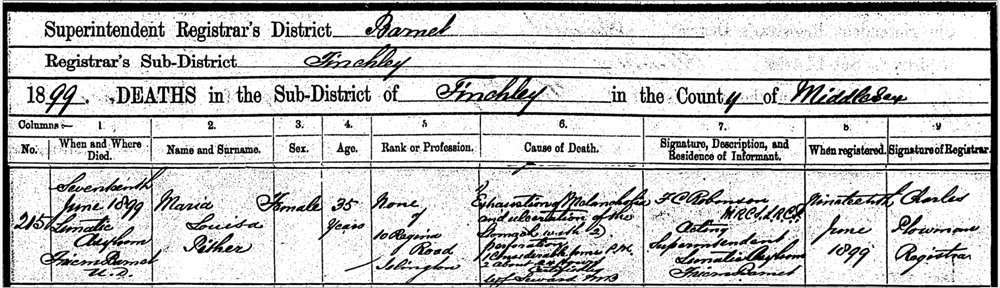 Superintendent Registrar's District Barnet
Registrar's Sub-District Finchley
1899. DEATHS in the Sub-District of Finchley in the County of Middlesex
Columns:— 1. 2. 3. 4. 5 6. 7. 8. 9
No. When and Where Died. Name and Surname. Sex. Age. Rank or Profession. Cause of Death. Signature, Description, and Residence of Informant. When registered. Signature of Registrar.
215
Seventeenth
June 1899
Lunatic
Asylum
Friern Barnet
U.D.
Maria
Louisa
Pither
Female
35
Years
None
of
10 Regina
Road
Islington
Exhaustion of Melancholia
and ulceration of the
Stomach with (2)
perforation
1 Considerable time P.M.
2 about 24 hours
Certified by
Seward MB
F C Robinson
M.R.C.S. L.R.C.P.
Acting
Superintendent
Lunatic Asylum
Friern Barnet
Nineteenth
June
1899
Charles
Plowman
Registrar